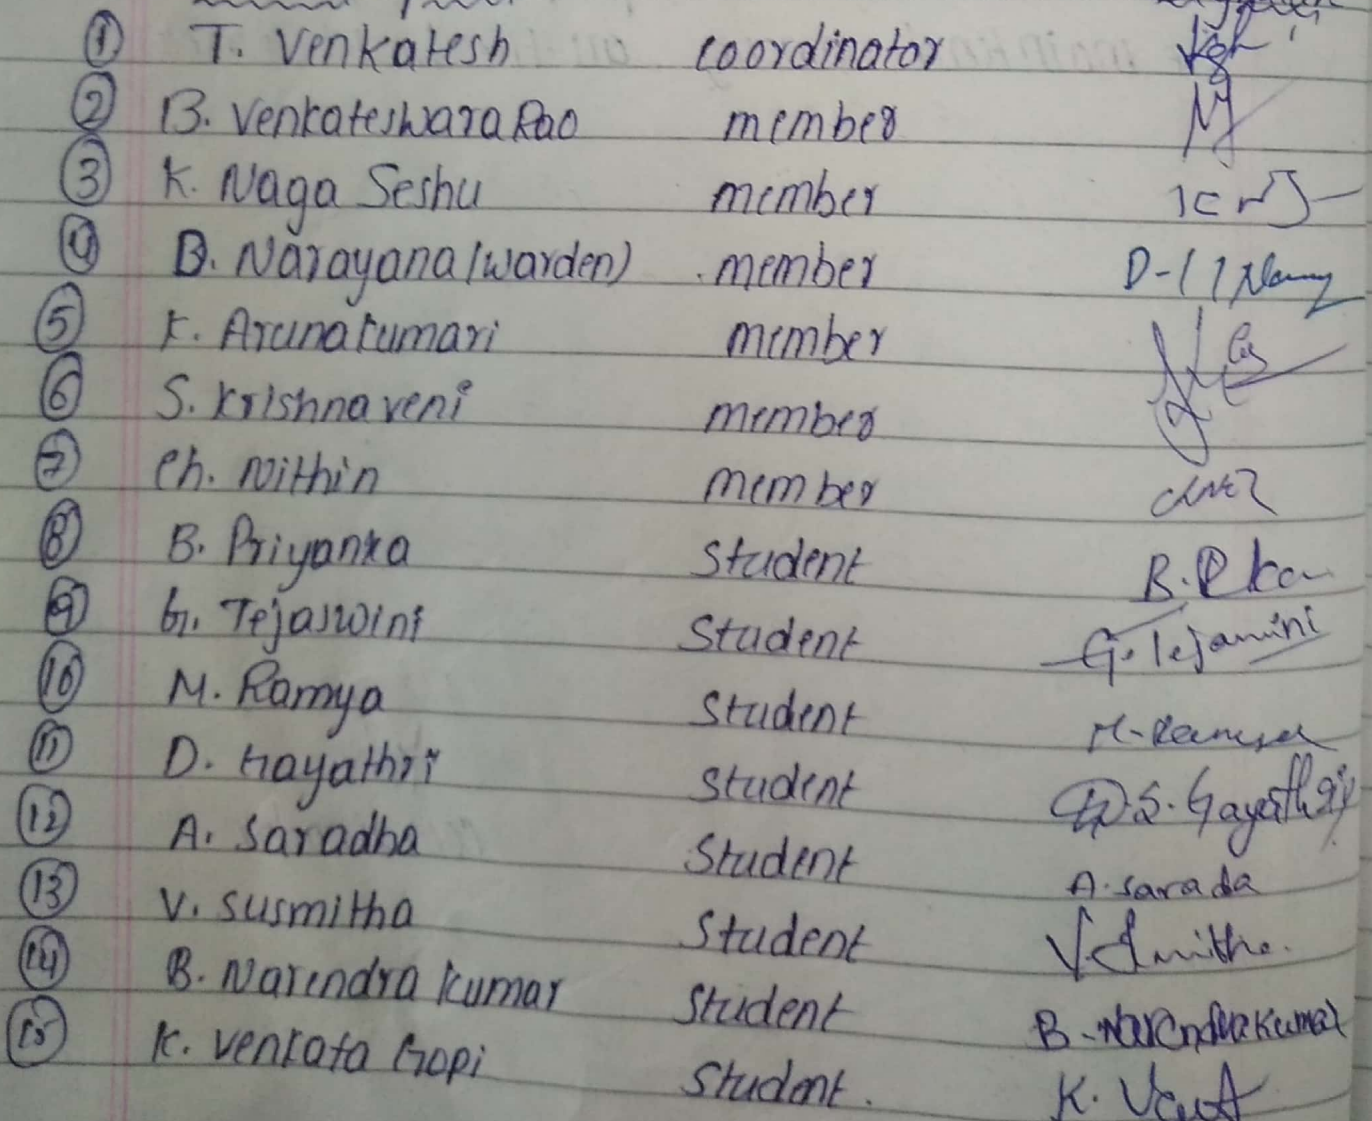 ① T. Venkatesh coordinator
② B. Venkateswara Rao member
③ K. Naga Seshu member
④ D. Narayana (warden) member
⑤ K. Aruna kumari member
⑥ S. Krishnaveni member
⑦ Ch. Nithin member
⑧ B. Priyanka Student
⑨ G. Tejaswini Student G. Tejaswini
⑩ M. Ramya Student M. Ramya
⑪ D. Gayathri Student D.S. Gayathri
⑫ A. Saradha Student A. Sarada
⑬ V. Susmitha Student
⑭ B. Narendra kumar Student B. Narendra Kumar
⑮ K. Venkata Gopi Student.